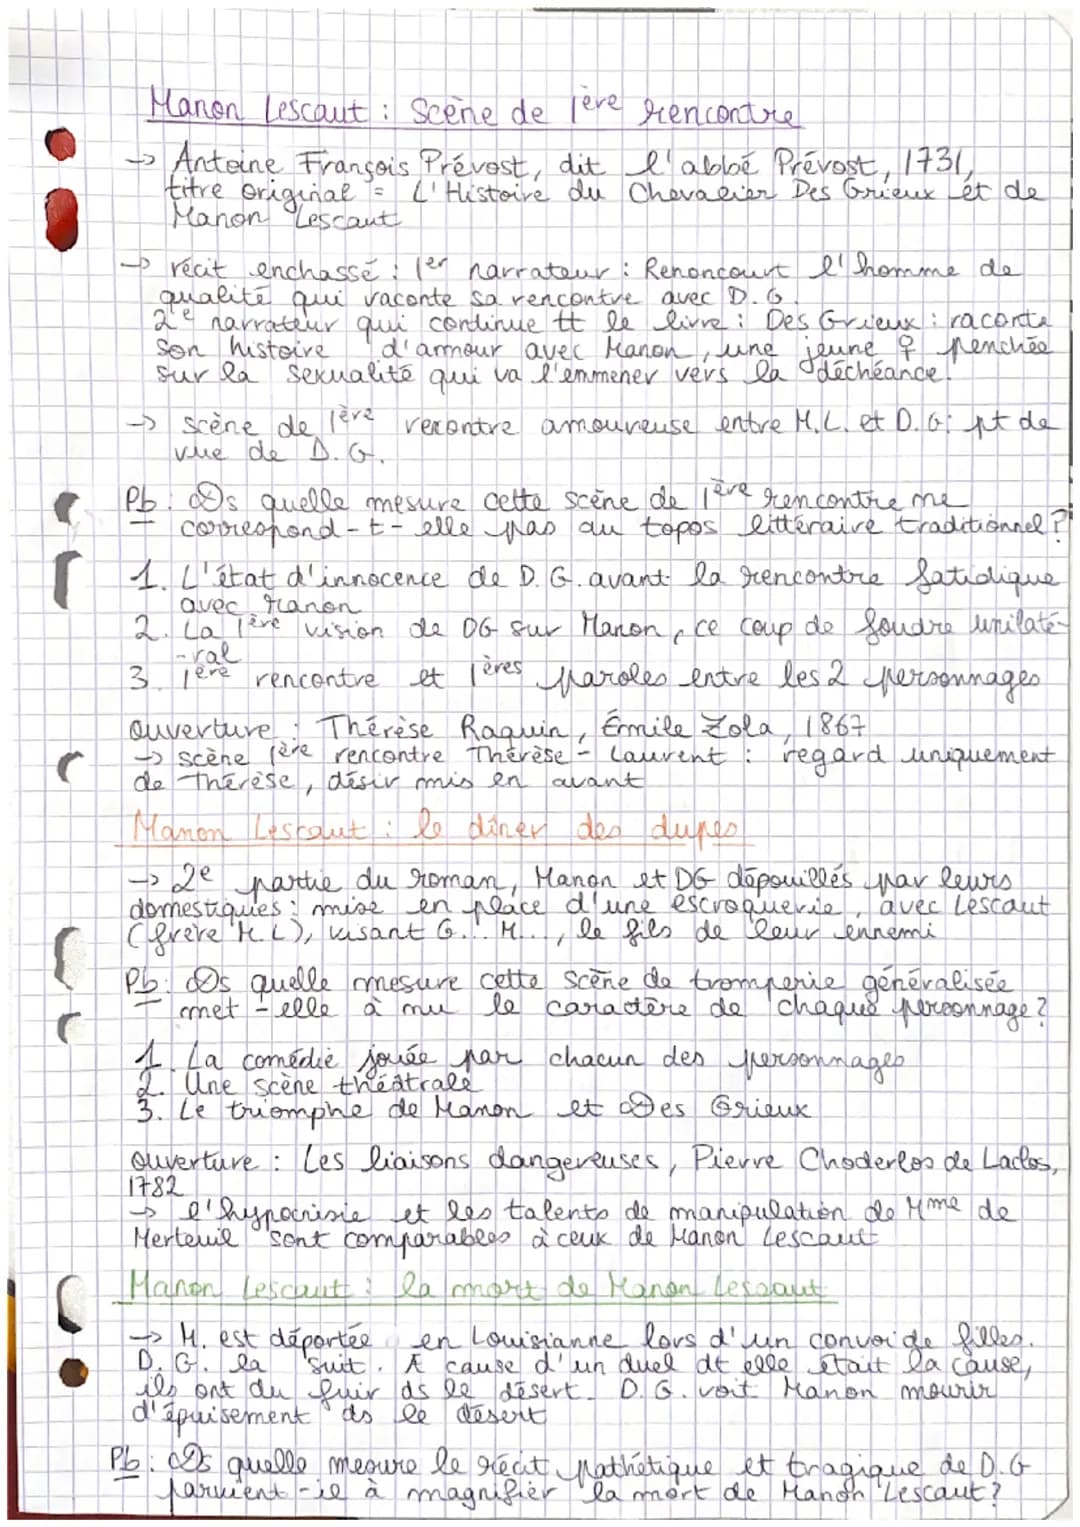 Manon Lescaut : Scène de 1ère rencontre
→ Antoine François Prévost, dit l'abbé Prévost, 1731,
titre original = L'Histoire du Chevalier Des Grieux et de
Manon Lescaut
→ récit enchassé : 1er narrateur : Renoncourt l'homme de
qualité qui raconte sa rencontre avec D.G.
2e narrateur qui continue tt le livre : Des Grieux : raconte
son histoire d'amour avec Manon, une jeune ♀ penchée
sur la sexualité qui va l'emmener vers la déchéance.
→ scène de 1ère recontre amoureuse entre M.L. et D.G : pt de
vue de D.G.
Pb : Ds quelle mesure cette scène de 1ère rencontre ne
correspond-t-elle pas au topos littéraire traditionnel ?
1. L'état d'innocence de D.G. avant la rencontre fatidique
avec Manon
2. La 1ère vision de DG sur Manon, ce coup de foudre unilaté-
-ral
3. 1ère rencontre et 1ères paroles entre les 2 personnages
Ouverture : Thérèse Raquin, Émile Zola, 1867
→ scène 1ère rencontre Thérèse - Laurent : regard uniquement
de Thérèse, désir mis en avant
Manon Lescaut : le dîner des dupes
→ 2e partie du roman, Manon et DG dépouillés par leurs
domestiques : mise en place d'une escroquerie, avec Lescaut
(frère M.L), visant G... M..., le fils de leur ennemi
Pb : Ds quelle mesure cette scène de tromperie généralisée
met-elle à nu le caractère de chaque personnage ?
1. La comédie jouée par chacun des personnages
2. Une scène théâtrale
3. Le triomphe de Manon et Des Grieux
Ouverture : Les liaisons dangereuses, Pierre Choderlos de Laclos,
1782
→ l'hypocrisie et les talents de manipulation de Mme de
Merteuil sont comparables à ceux de Manon Lescaut
Manon Lescaut : la mort de Manon Lescaut
→ M. est déportée en Louisianne lors d'un convoi de filles.
D.G. la suit. A cause d'un duel dt elle était la cause,
ils ont du fuir ds le désert. D.G. voit Manon mourir
d'épuisement ds le désert
Pb : Ds quelle mesure le récit pathétique et tragique de D.G
parvient-il à magnifier la mort de Manon Lescaut ?